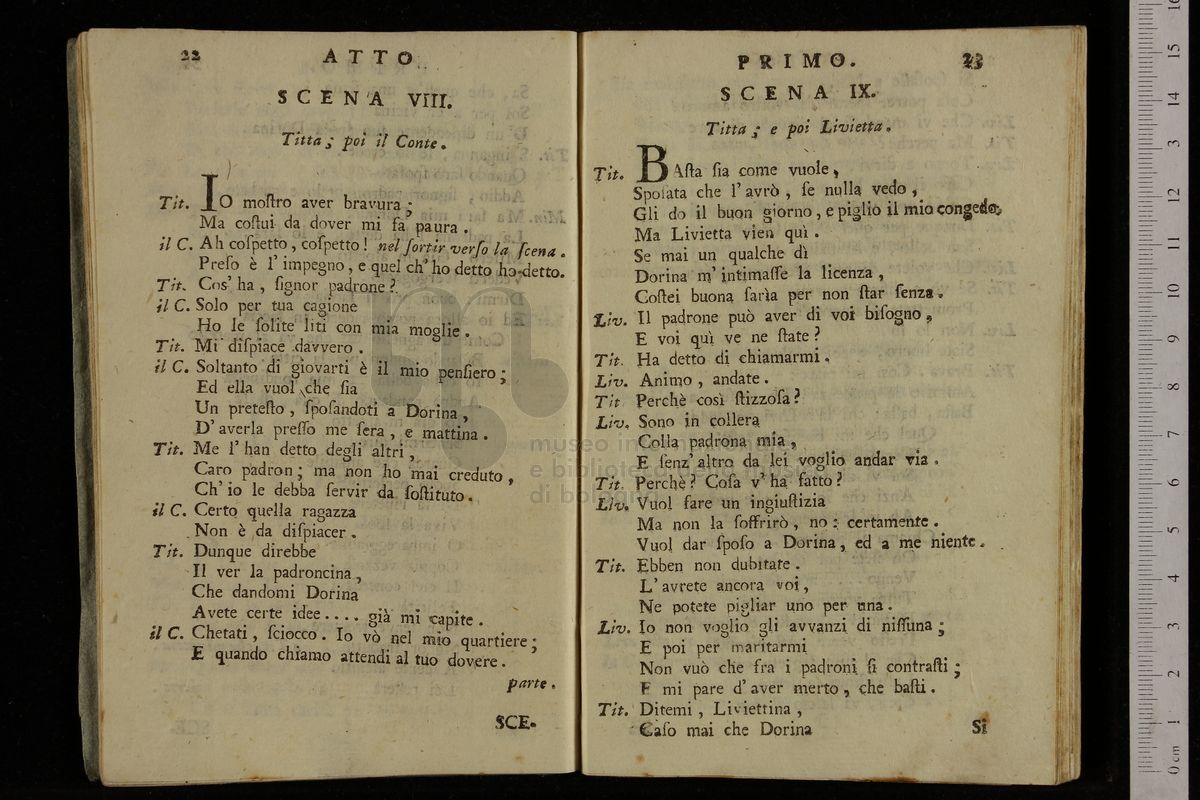 22 ATTO
SCENA VIII.
Titta; poi il Conte.
Tit. IO moſtro aver bravura;
Ma coſtui da dover mi fa paura.
il C. Ah coſpetto, coſpetto! nel ſortir verſo la ſcena.
Preſo è l'impegno, e quel ch'ho detto ho detto.
Tit. Cos' ha, ſignor padrone?
il C. Solo per tua cagione
Ho le ſolite liti con mia moglie.
Tit. Mi diſpiace davvero.
il C. Soltanto di giovarti è il mio penſiero;
Ed ella vuol che ſia
Un preteſto, ſpoſandoti a Dorina,
D'averla preſſo me ſera, e mattina.
Tit. Me l'han detto degli altri,
Caro padron; ma non ho mai creduto,
Ch'io le debba ſervir da ſoſtituto.
il C. Certo quella ragazza
Non è da diſpiacer.
Tit. Dunque direbbe
Il ver la padroncina,
Che dandomi Dorina
Avete certe idee.... già mi capite.
il C. Chetati, ſciocco. Io vò nel mio quartiere;
E quando chiamo attendi al tuo dovere.
parte.
SCE-
PRIMO. 23
SCENA IX.
Titta; e poi Livietta.
Tit. BAſta ſia come vuole,
Spoſata che l'avrò, ſe nulla vedo,
Gli do il buon giorno, e piglio il mio congedo,
Ma Livietta vien quì.
Se mai un qualche dì
Dorina m'intimaſſe la licenza,
Coſtei buona ſarìa per non ſtar ſenza.
Liv. Il padrone può aver di voi biſogno,
E voi quì ve ne ſtate?
Tit. Ha detto di chiamarmi.
Liv. Animo, andate.
Tit. Perchè così ſtizzoſa?
Liv. Sono in collera
Colla padrona mia,
E ſenz'altro da lei voglio andar via.
Tit. Perchè? Coſa v'ha fatto?
Liv. Vuol fare un ingiuſtizia
Ma non la ſoffrirò, no: certamente.
Vuol dar ſpoſo a Dorina, ed a me niente.
Tit. Ebben non dubitate.
L'avrete ancora voi,
Ne potete pigliar uno per una.
Liv. Io non voglio gli avvanzi di niſſuna;
E poi per maritarmi
Non vuò che fra i padroni ſi contraſti;
E mi pare d'aver merto, che baſti.
Tit. Ditemi, Liviettina,
Caſo mai che Dorina
Si